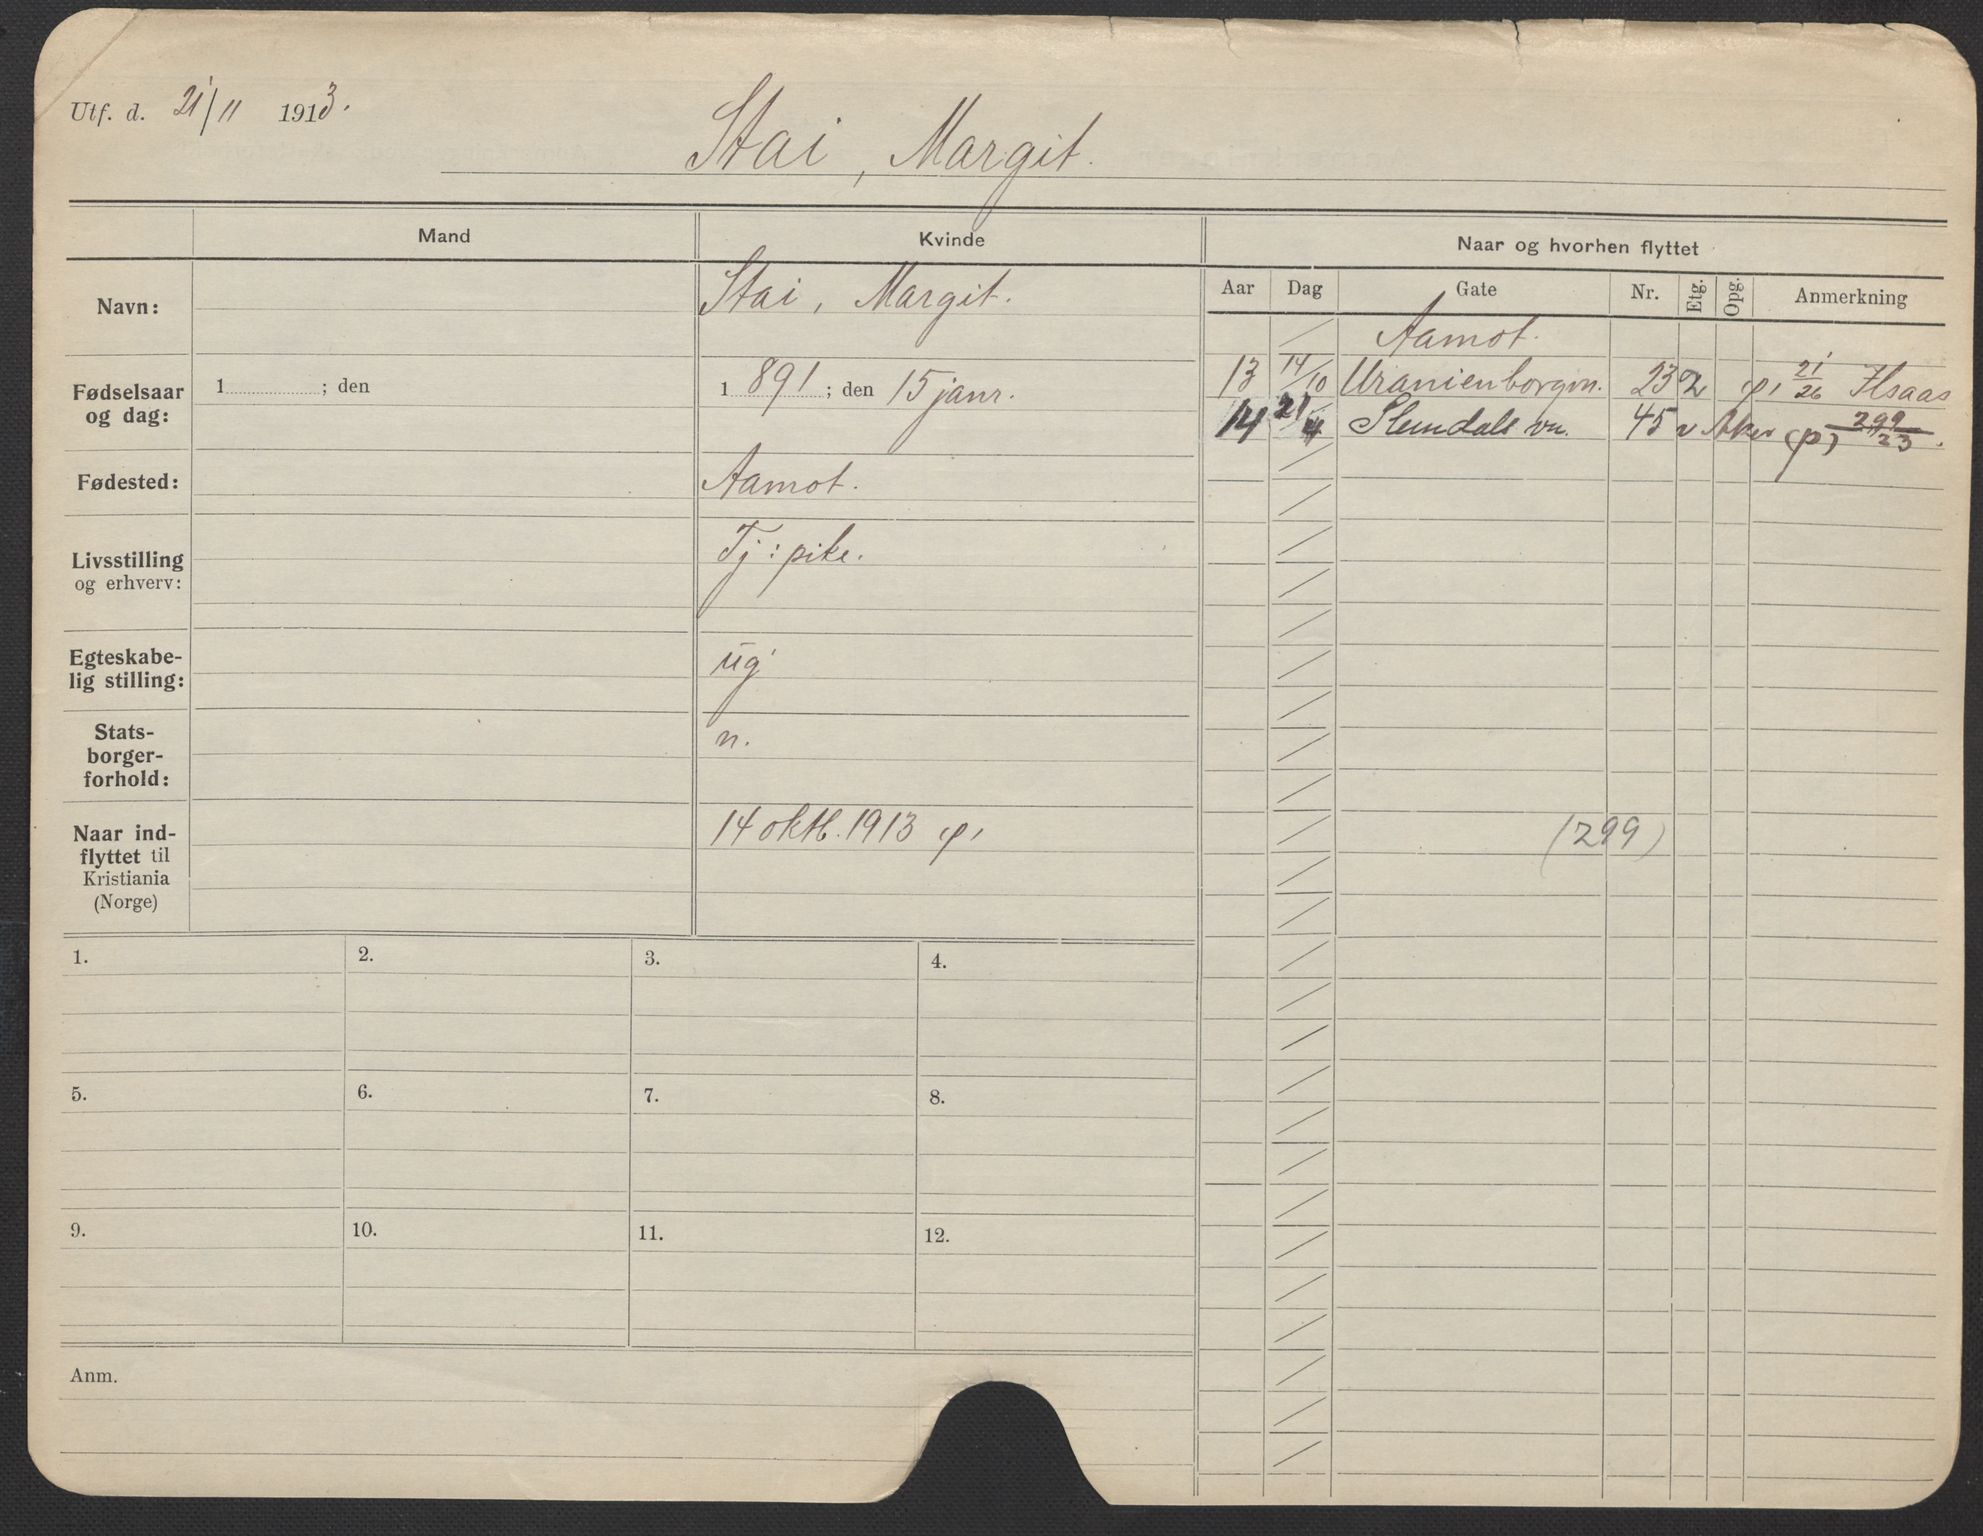 Utf. d. 21/11 1913.
Stai, Margit.
Mand
Kvinde
Naar og hvorhen flyttet
Aar Dag Gate Nr. Etg. Opg. Anmerkning
Navn:
Stai, Margit.
Aamot.
13 14/10 Uranienborgvn. 23 2 21/26 Hsaas
14 21/4 Slemdalsvn. 45 v Aker (p) 299/23.
Fødselsaar
og dag:
1 ; den
1891 ; den 15 janr.
Fødested:
Aamot.
Livsstilling
og erhverv:
Tj: pike.
Egteskabe-
lig stilling:
ug
Stats-
borger-
forhold:
n.
Naar ind-
flyttet til
Kristiania
(Norge)
14 oktb. 1913
(299)
1. 2. 3. 4.
5. 6. 7. 8.
9. 10. 11. 12.
Anm.